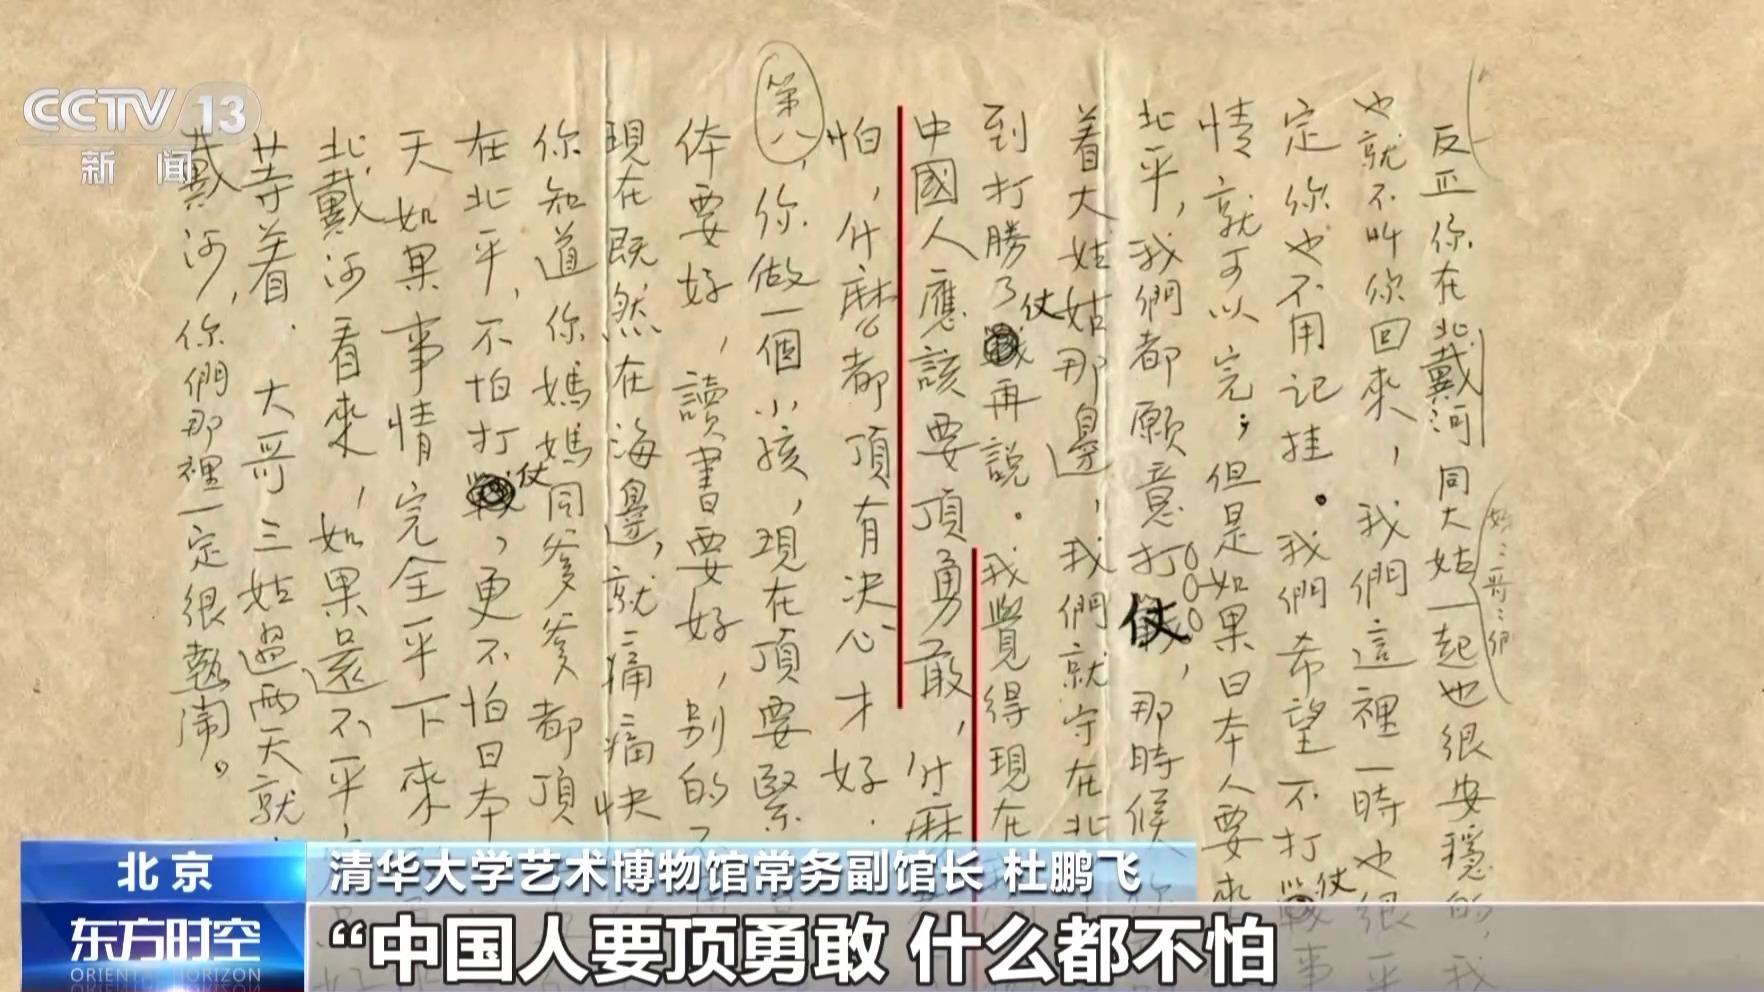 CCTV 13
新闻
反正你在北戴河同大姑一起也很安穩的,我
也就不叫你回來,我們這裡一時也很平
定你也不用记挂。我們希望不打仗事
情就可以完;但是如果日本人要來
北平,我們都願意打仗,那時候你
着大姑姑那邊,我們就守在北
到打勝了仗再説。我覺得現在
中國人應該要頂勇敢,什麽
怕,什麽都頂有决心才好.
第八,你做一個小孩,現在頂要緊
体要好,讀書要好,別的
現在既然在海邊,就痛痛快
你知道你媽媽同爹爹都頂
在北平,不怕打仗,更不怕日本
天如果事情完全平下來
北戴河看來,如果還不平
等着.大哥三姑過两天就
戴河,你們那裡一定很熱鬧。
北京
清华大学艺术博物馆常务副馆长 杜鹏飞
东方时空
ORIENTAL HORIZON
“中国人要顶勇敢 什么都不怕